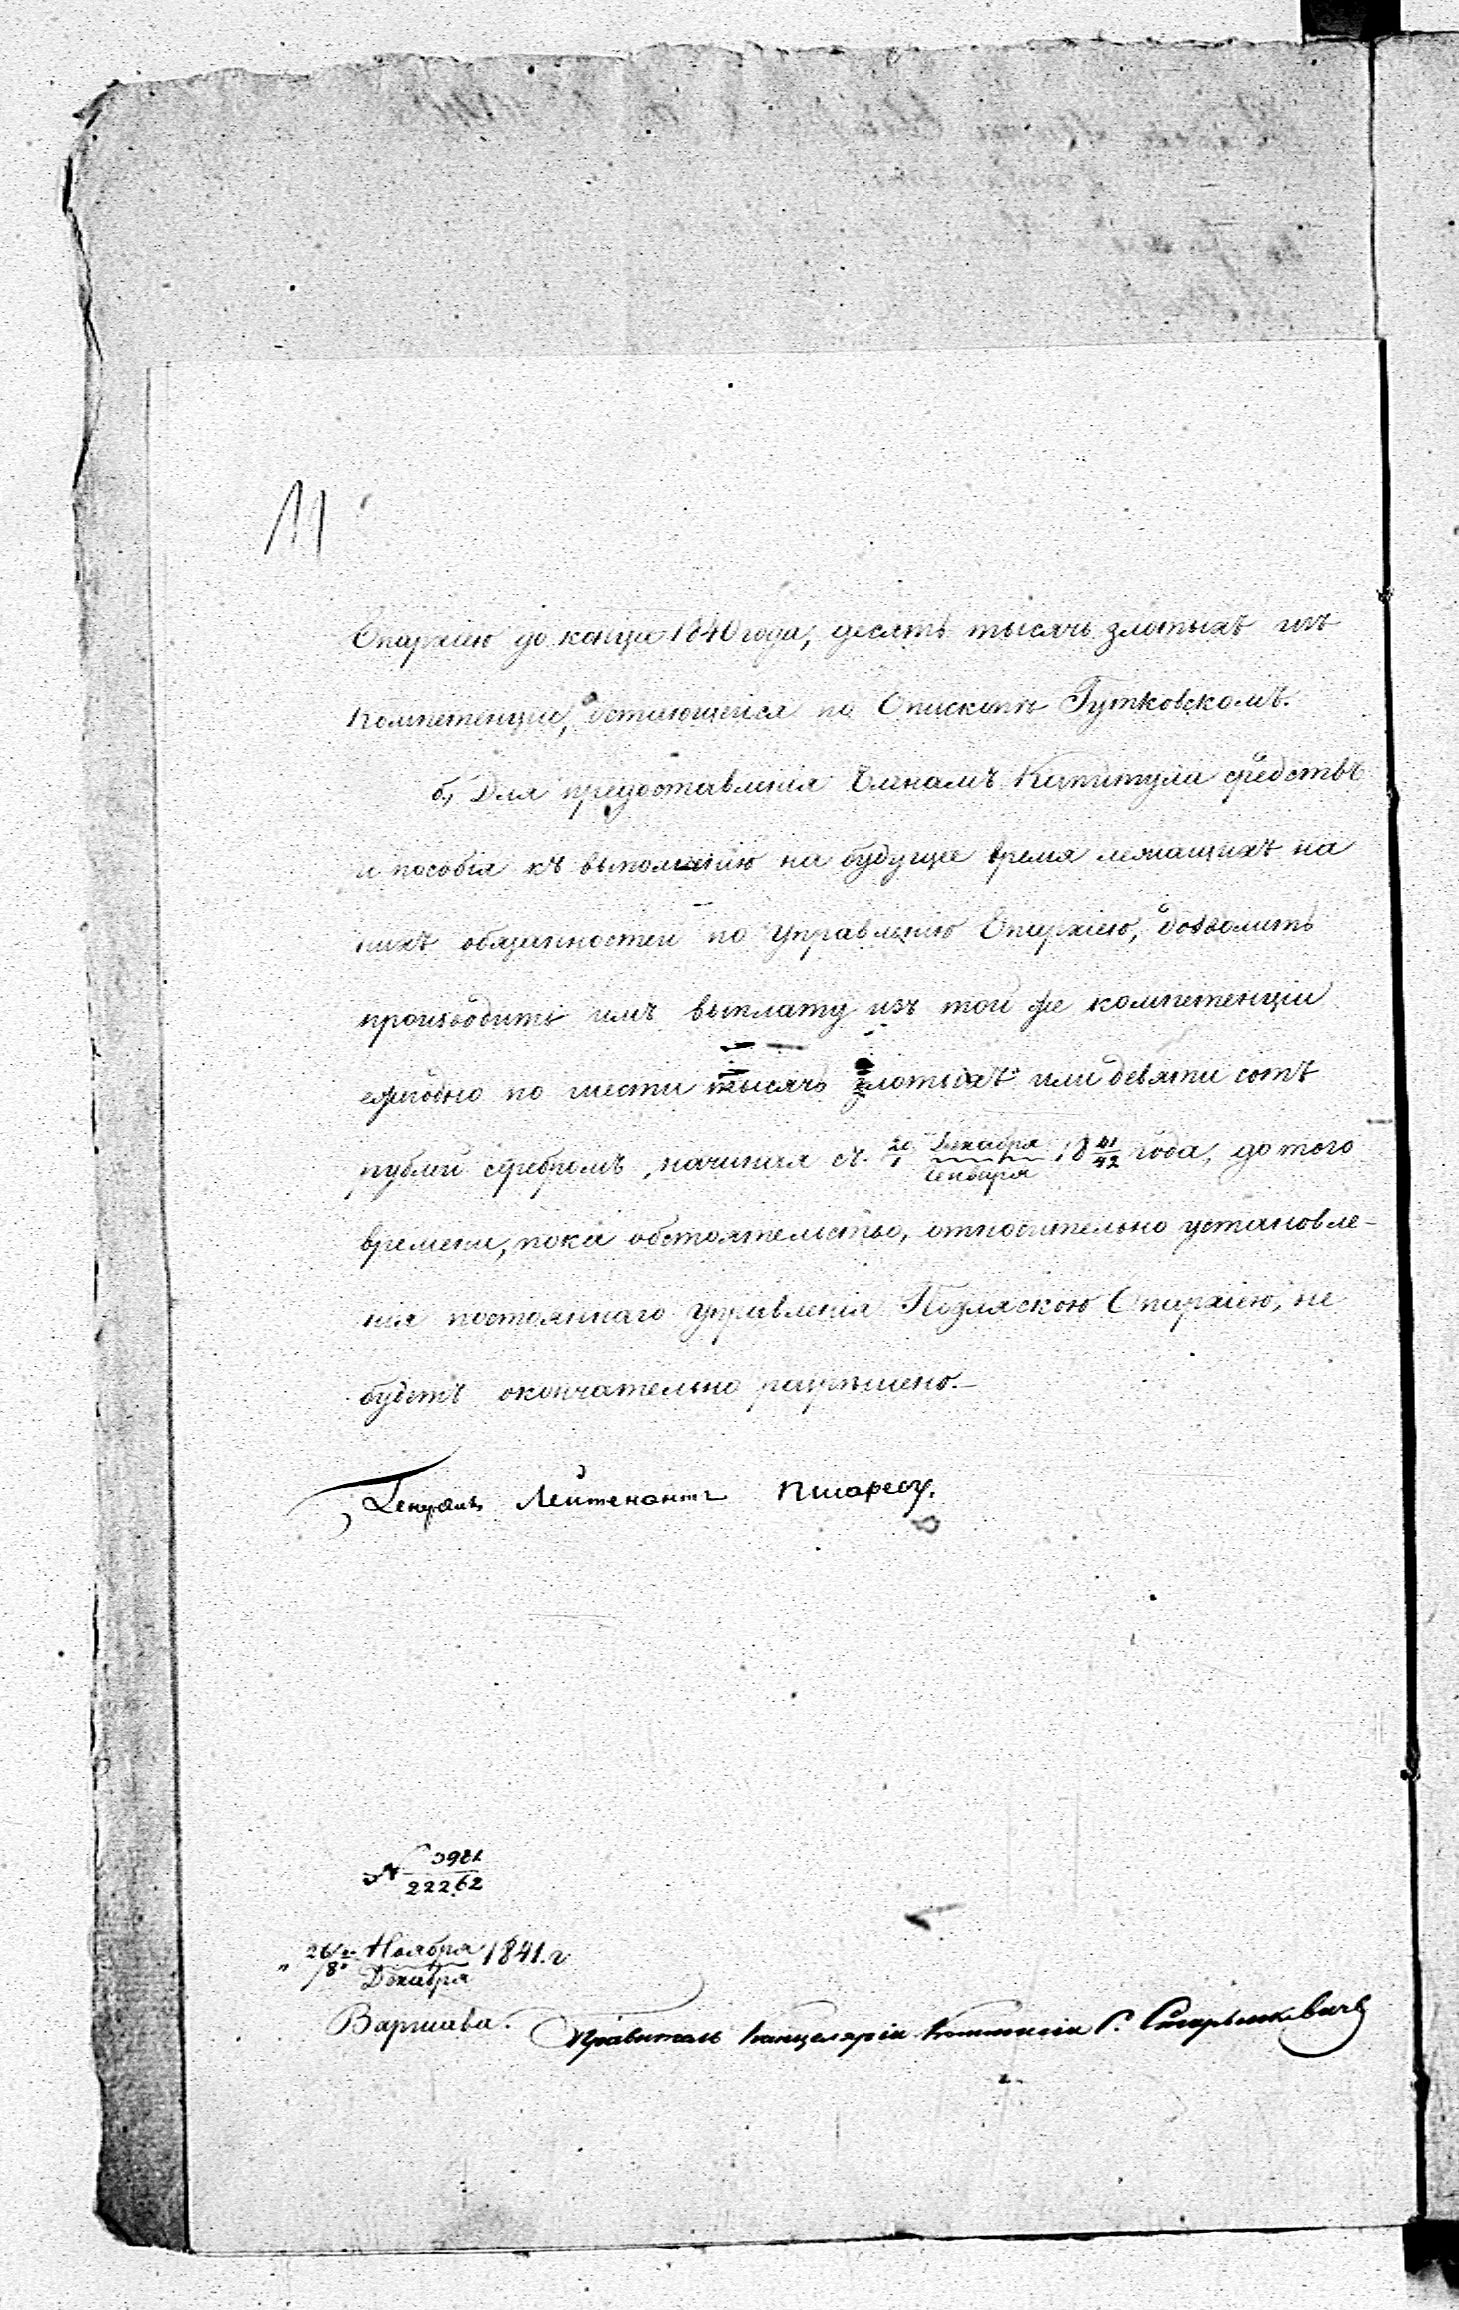 11
Епархіею до конца 1840 года, десять тысячь злотыхъ изъ
компетенціи, остающейся по Епископѣ Гутковскомъ.
б, Для предоставленія Членамъ Капитула средствъ
и пособія къ выполненію на будущее время лежащихъ на
нихъ обязанностей по управленію Епархіею, дозволить
производить имъ выплату изъ той же компетенціи
ежегодно по шести тысячь злотыхъ или девяти сотъ
рублей серебромъ, начиная съ 20/1 Декабря/Генваря 18 41/42 года, до того
времени, пока обстоятельство, относительно установле-
нія постояннаго управленія Подляскою Епархіею, не
будетъ окончательно разрѣшено.—
Генералъ Лейтенантъ Писаревъ.
№ 3981/22262
26/8 Ноября/Декабря 1841. г
Варшава.
Правитель Канцеляріи Коммисіи С. Старынкевичъ